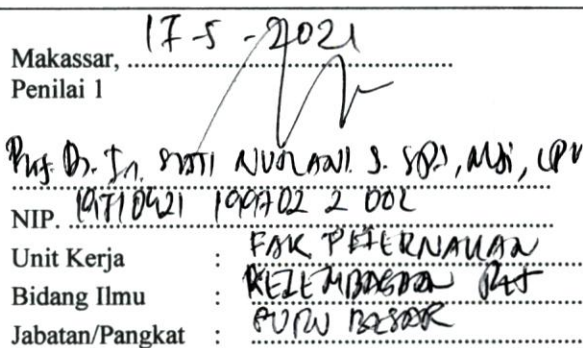 Makassar, 17-5-2021
Penilai 1
Prof. Dr. Ir. SITTI NURLANI S. SPt, MSi,
NIP. 19710421 199702 2 002
Unit Kerja : FAK PETERNAKAN
Bidang Ilmu : KELEMBAGAAN
Jabatan/Pangkat : GURU BESAR